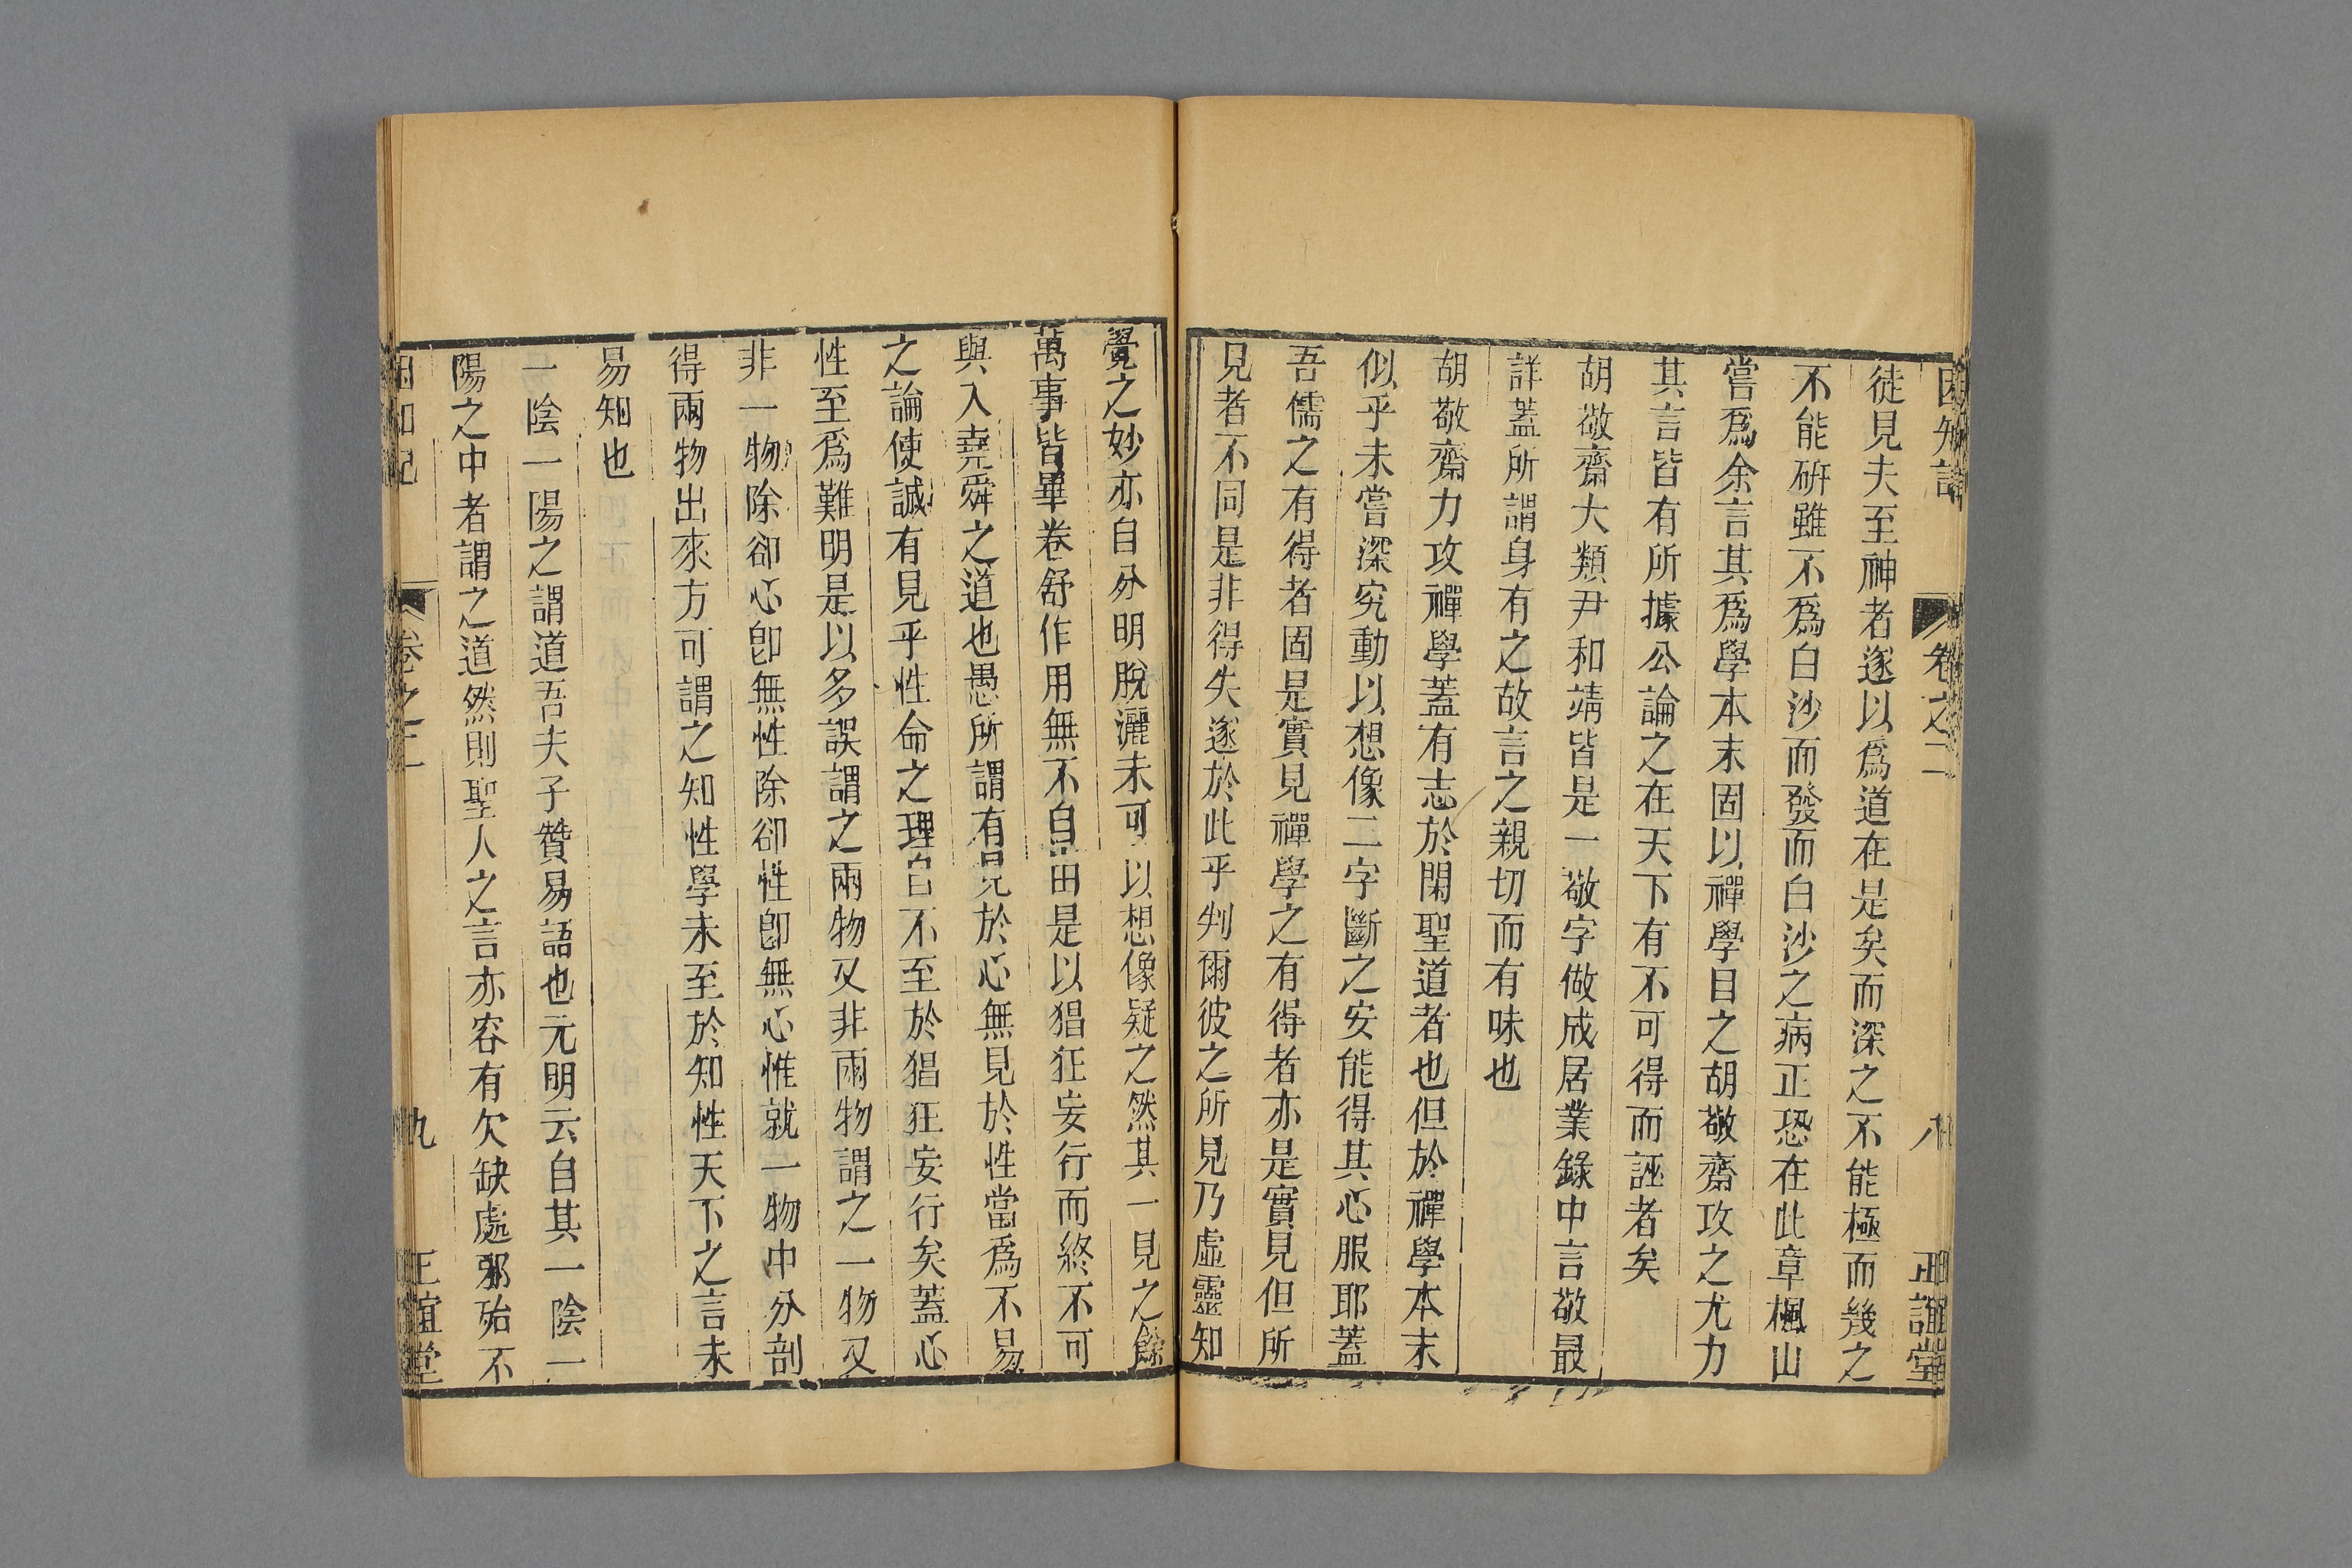 困知記 卷之二 八 正誼堂
徒見夫至神者遂以爲道在是矣而深之不能極而幾之
不能硏雖不爲白沙而發而白沙之病正恐在此章楓山
嘗爲余言其爲學本末固以禪學目之胡敬齋攻之尤力
其言皆有所據公論之在天下有不可得而誣者矣
胡敬齋大類尹和靖皆是一敬字做成居業錄中言敬最
詳蓋所謂身有之故言之親切而有味也
胡敬齋力攻禪學蓋有志於閑聖道者也但於禪學本末
似乎未嘗深究動以想像二字斷之安能得其心服耶蓋
吾儒之有得者固是實見禪學之有得者亦是實見但所
見者不同是非得失遂於此乎判爾彼之所見乃虛靈知
覺之妙亦自分明脫灑未可以想像疑之然其一見之餘
萬事皆畢卷舒作用無不自由是以猖狂妄行而終不可
與入堯舜之道也愚所謂有見於心無見於性當爲不易
之論使誠有見乎性命之理自不至於猖狂妄行矣蓋心
性至爲難明是以多誤謂之兩物又非兩物謂之一物又
非一物除卻心卽無性除卻性卽無心惟就一物中分剖
得兩物出來方可謂之知性學未至於知性天下之言未
易知也
一陰一陽之謂道吾夫子贊易語也元明云自其一陰一
陽之中者謂之道然則聖人之言亦容有欠缺處邪殆不
困知記 卷之二 九 正誼堂